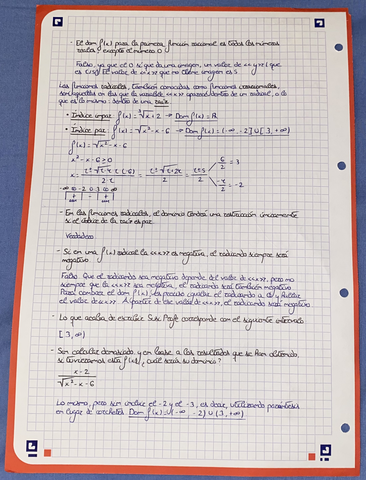 - El dom f(x) para la primera función racional es todos los números
reales, excepto el número 0
Falso, ya que el 0 sí que da una imagen, un valor de <<y>> que
es (1,5). El valor de <<x>> que no tiene imagen es 5
Las funciones radicales, también conocidas como funciones irracionales,
son aquellas en las que la variable <<x>> aparece dentro de un radical, o lo
que es lo mismo: dentro de una raíz.
• Índice impar f(x) = ∛x+2 → Dom f(x) = R
• Índice par f(x) = √x²-x-6 → Dom f(x) = (-∞, -2] U [3, +∞)
f(x) = √x²-x-6
x²-x-6≥0
- En las funciones radicales, el dominio tendrá una restricción únicamente
si el índice de la raíz es par
Verdadero
- Si en una f(x) radical la <<x>> es negativa, el radicando siempre será
negativo
Falso. Que el radicando sea negativo depende del valor de <<x>>, pero no
siempre que la <<x>> sea negativa, el radicando será también negativo
Para conocer el dom f(x) es preciso igualar el radicando a 0 y hallar
el valor de <<x>>. A partir de ese valor de <<x>>, el radicando será negativo
- Lo que acaba de escribir Susi Profe corresponde con el siguiente intervalo
[3, ∞)
- Sin calcular demasiado, y en base a los resultados que se han obtenido,
si tuviéramos esta f(x), ¿cuál sería su dominio?
x-2
√x²-x-6
Lo mismo, pero sin incluir el -2 y el -3, es decir, utilizando paréntesis
en lugar de corchetes Dom f(x) = (-∞, -2) U (3, +∞)